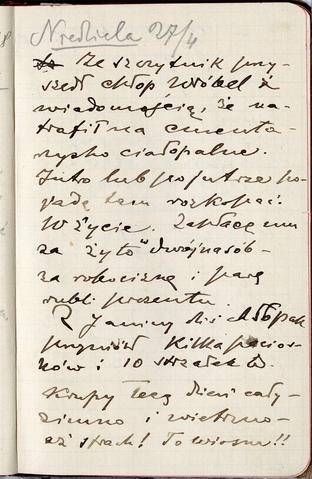 Niedziela 27/4
Ze Szczytnik przy-
szedł chłop Wróbel z
wiadomością, że na-
trafił na cmenta-
rzysko ciałopalne.
Jutro lub pojutrze po-
jadę tam rozkopać
w życie. Zapłacę mu
za "żyto" dwójnasób -
za robociznę i parę
rubli prezentu.
Z Janiny dziś chłopak
przyniósł kilka pacior-
ków i 10 strzałek
Krupy lecą dzień cały -
zimno i wietrzno -
aż strach! To wiosna!!